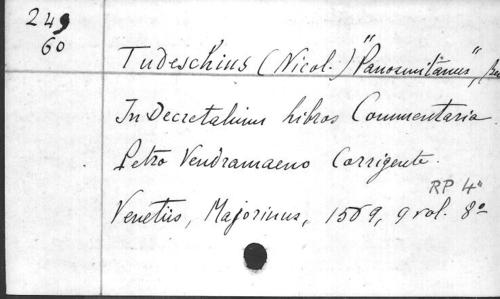 249
60
Tudeschius (Nicol.) "Panormitanus",
In Decretalium libros Commentaria.
Petro Vendramaeno Corrigente.
RP 4°
Venetiis, Majorinus, 1569, 9 vol. 8°